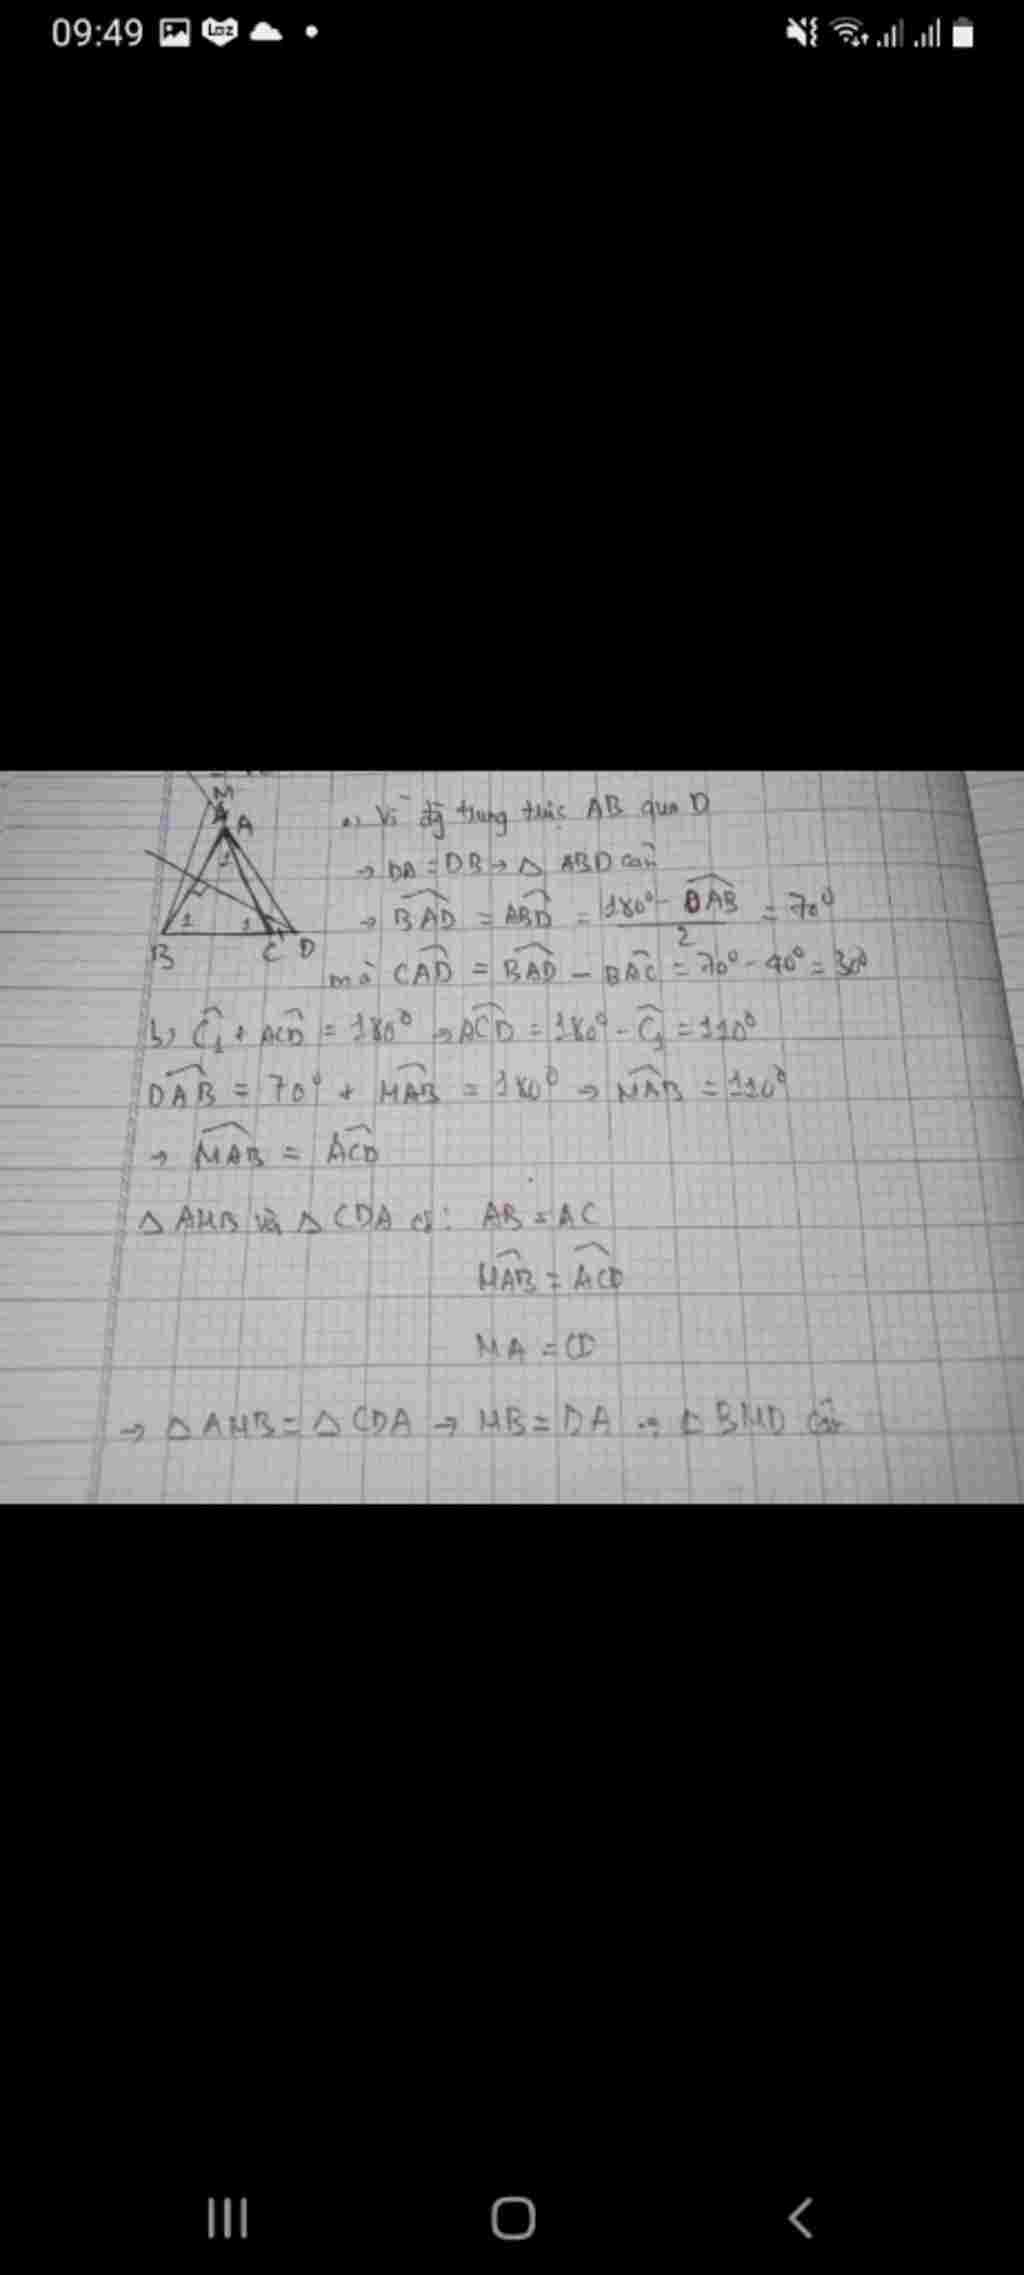 09:49
M
A
1
1
1
B
C
D
a) Vì đg trung trực AB qua D
→ DA = DB → △ ABD cân
→ BAD = ABD = 180° - DAB / 2 = 70°
mà CAD = BAD - BAC = 70° - 40° = 30°
b) C₁ + ACD = 180° → ACD = 180° - C₁ = 110°
DAB = 70° + MAB = 180° → MAB = 110°
→ MAB = ACD
△ AMB và △ CDA có: AB = AC
MAB = ACD
MA = CD
→ △ AMB = △ CDA → MB = DA → △ BMD cân